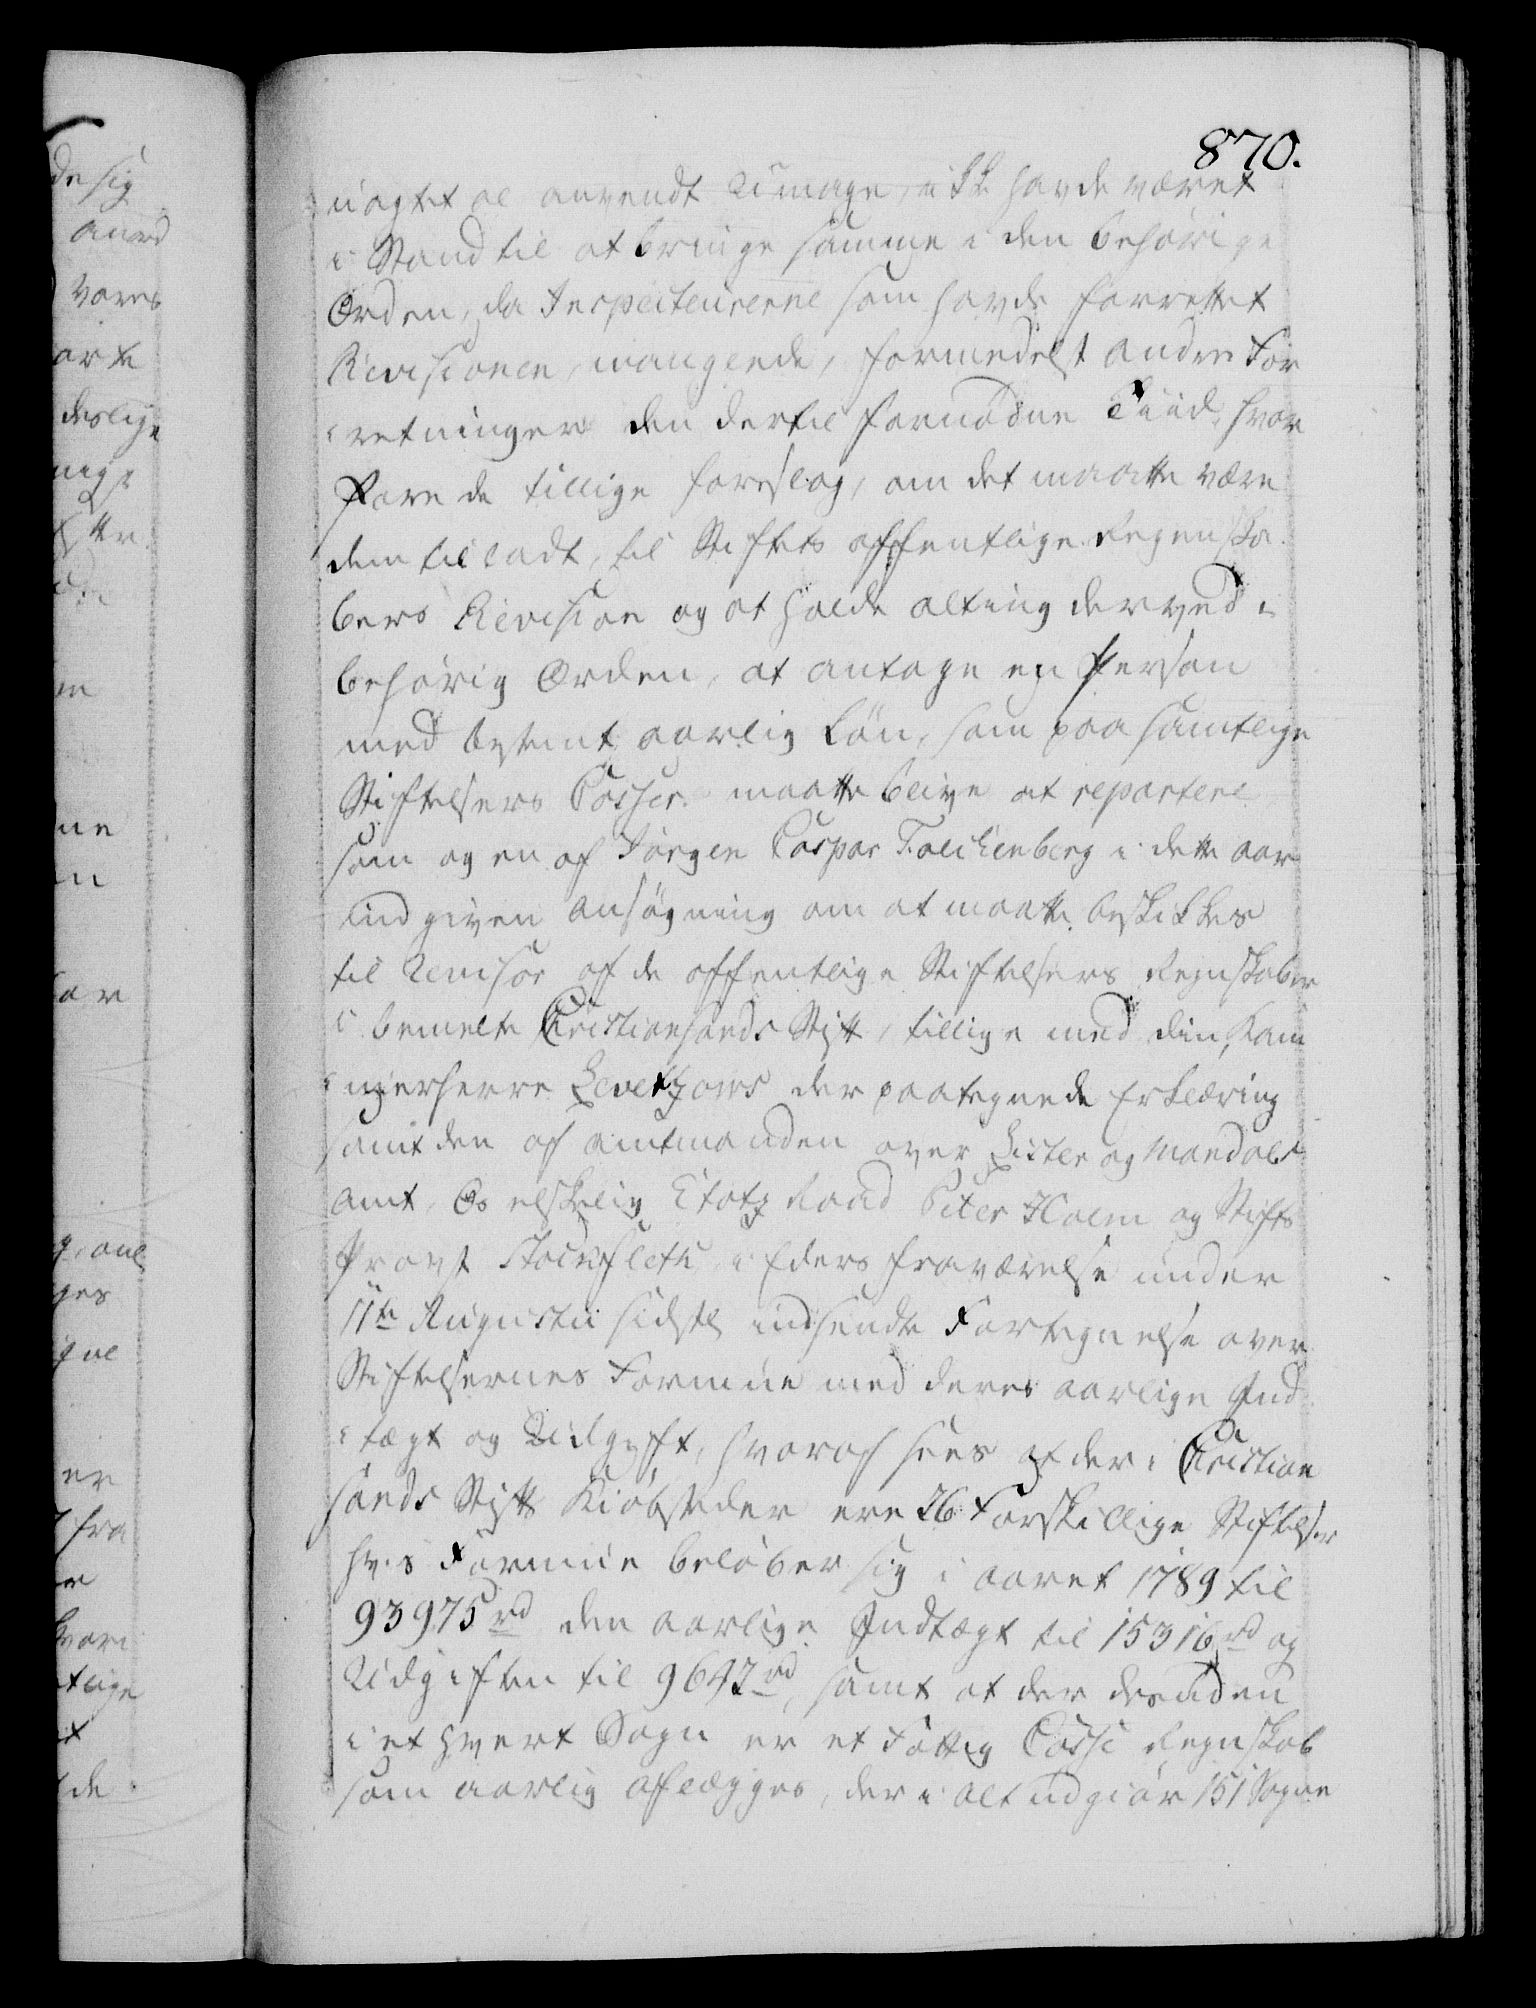 870.
uagtet al anvendt Umage, ikke havde været
i Stand til at bringe samme i den behørige
Orden, da Inspecteurerne som havde forrettet
Revisionen, manglede, formedelst andre For
retninger den dertil fornødne Tiid, hvor
fore de tillige foreslog, om det maatte være
dem tilladt, til Stiftets offentlige Regenska
bers Revision og at holde alting derved i
behørig Orden, at antage en Person
med bestemt aarlig Løn, som paa samtlige
Stiftelsers Casser maatte blive at repartere
som og en af Jørgen Caspar Falckenberg i dette Aar
indgiven Ansøgning om at maatte beskikkes
til Revisor af de offentlige Stiftelsers Regnskaber
i bemelte Christiansands Stift, tillige med din, Kam
merherre Levetzows der paategnede Erklæring
samt den af Amtmanden over Lister og Mandals
Amt, Os elskelig Etatz Raad Peter Holm og Stifts
Provst Stockfleth, i Eders Fraværelse under
11te Augustii sidstl indsendte Fortegnelse over
Stiftelsernes Formue med deres aarlige Ind
tægt og Udgift, hvoraf sees at der i Christian
sands Stifts Kiøbstæder ere 26 Forskillige Stiftelser
hvis Formue beløber sig i Aaret 1789 til
93975 rd den aarlige Indtægt til 15316 rd og
Udgiften til 9642 rd, samt at der desuden
i et hvert Sogn er et Fattig Casse Regnskab
som aarlig aflægges, der i alt udgiør 151 Sogne